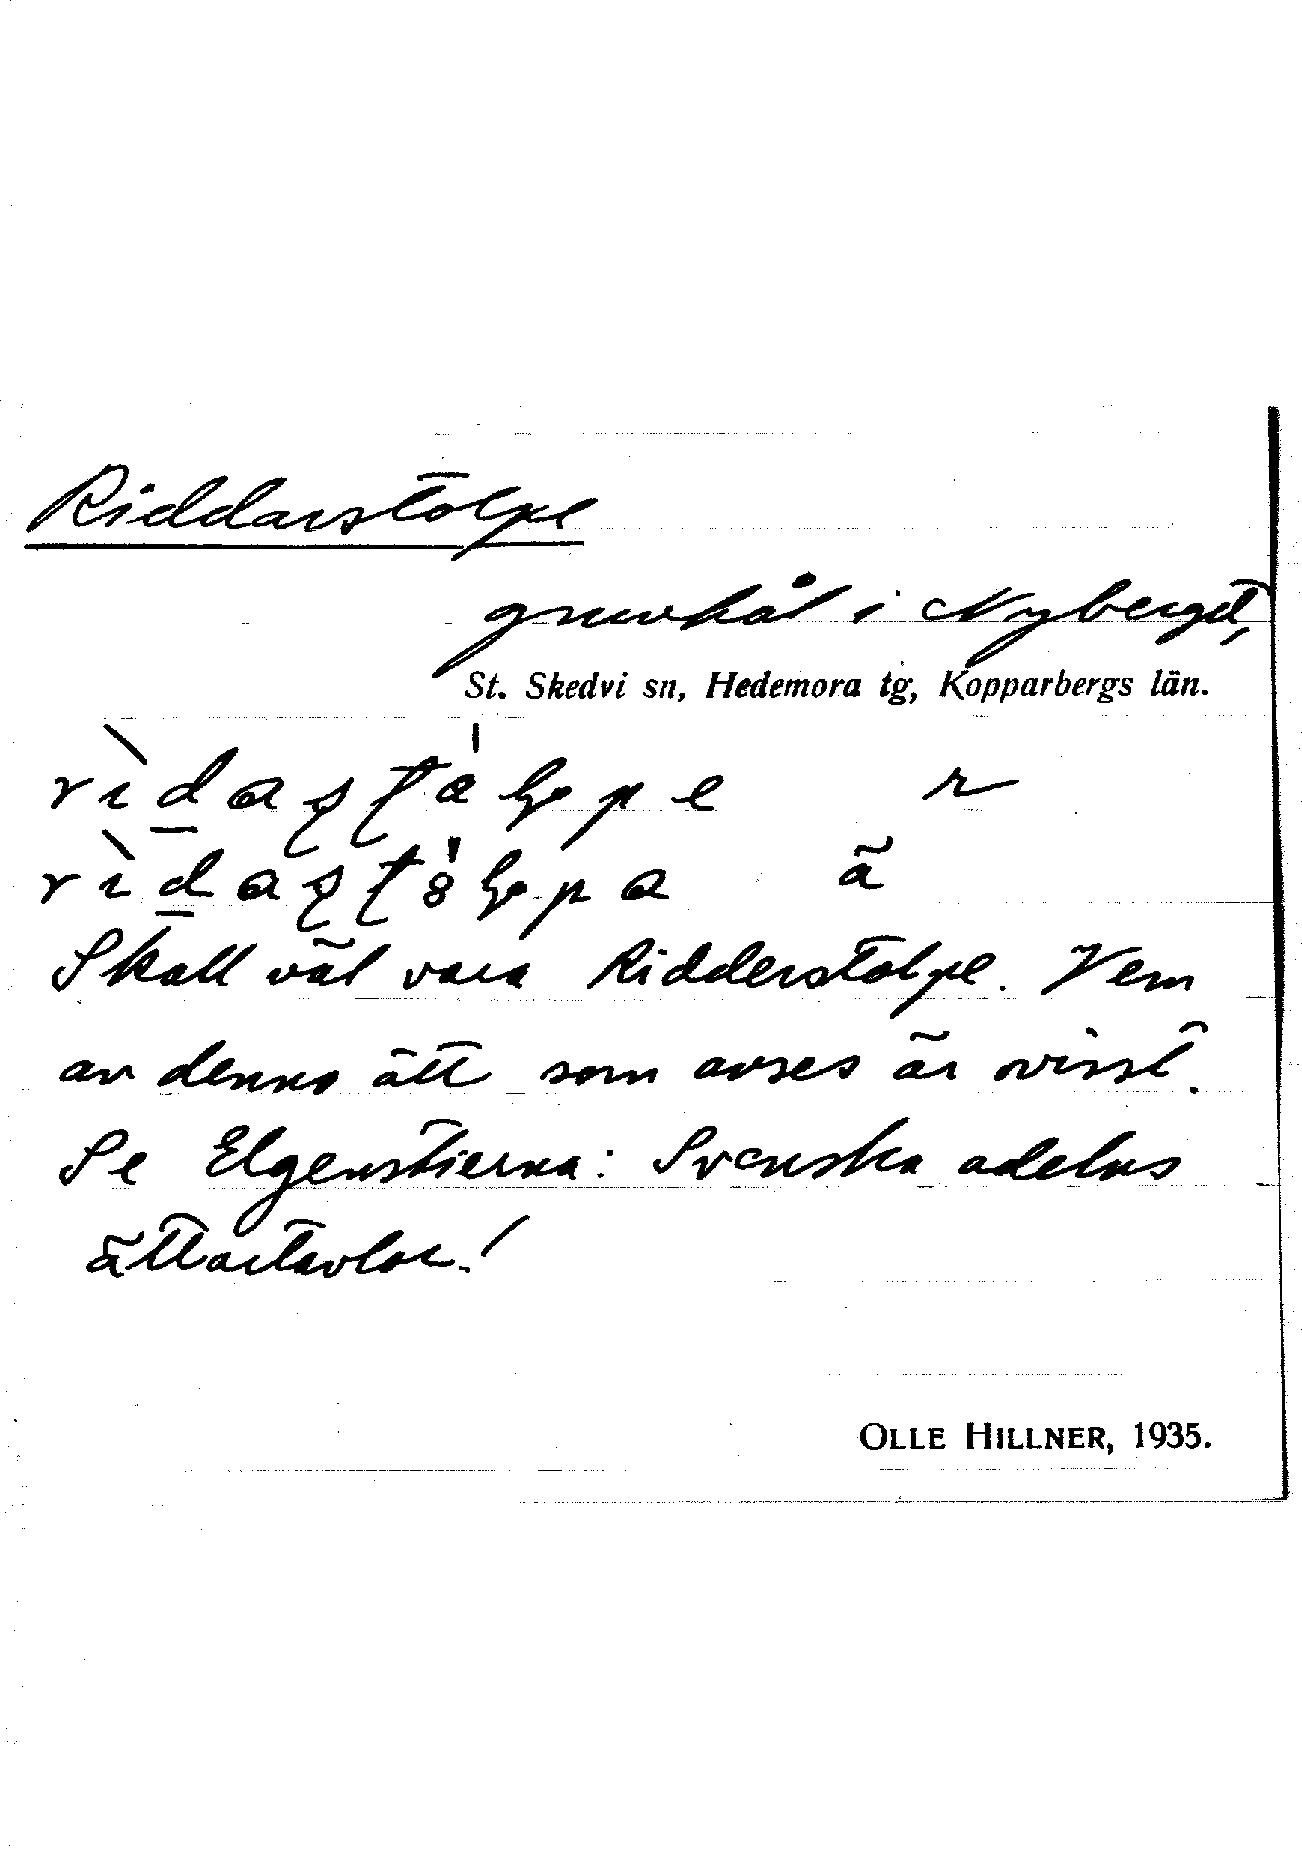 Riddarstolpe
gruvhål i Nyberget,
St. Skedvi sn, Hedemora tg, Kopparbergs län.
r
ä
Skall väl vara Ridderstolpe. Vem
av denna ätt som avses är ovisst.
Se Elgenstierna: Svenska adelns
ättartavlor!
OLLE HILLNER, 1935.